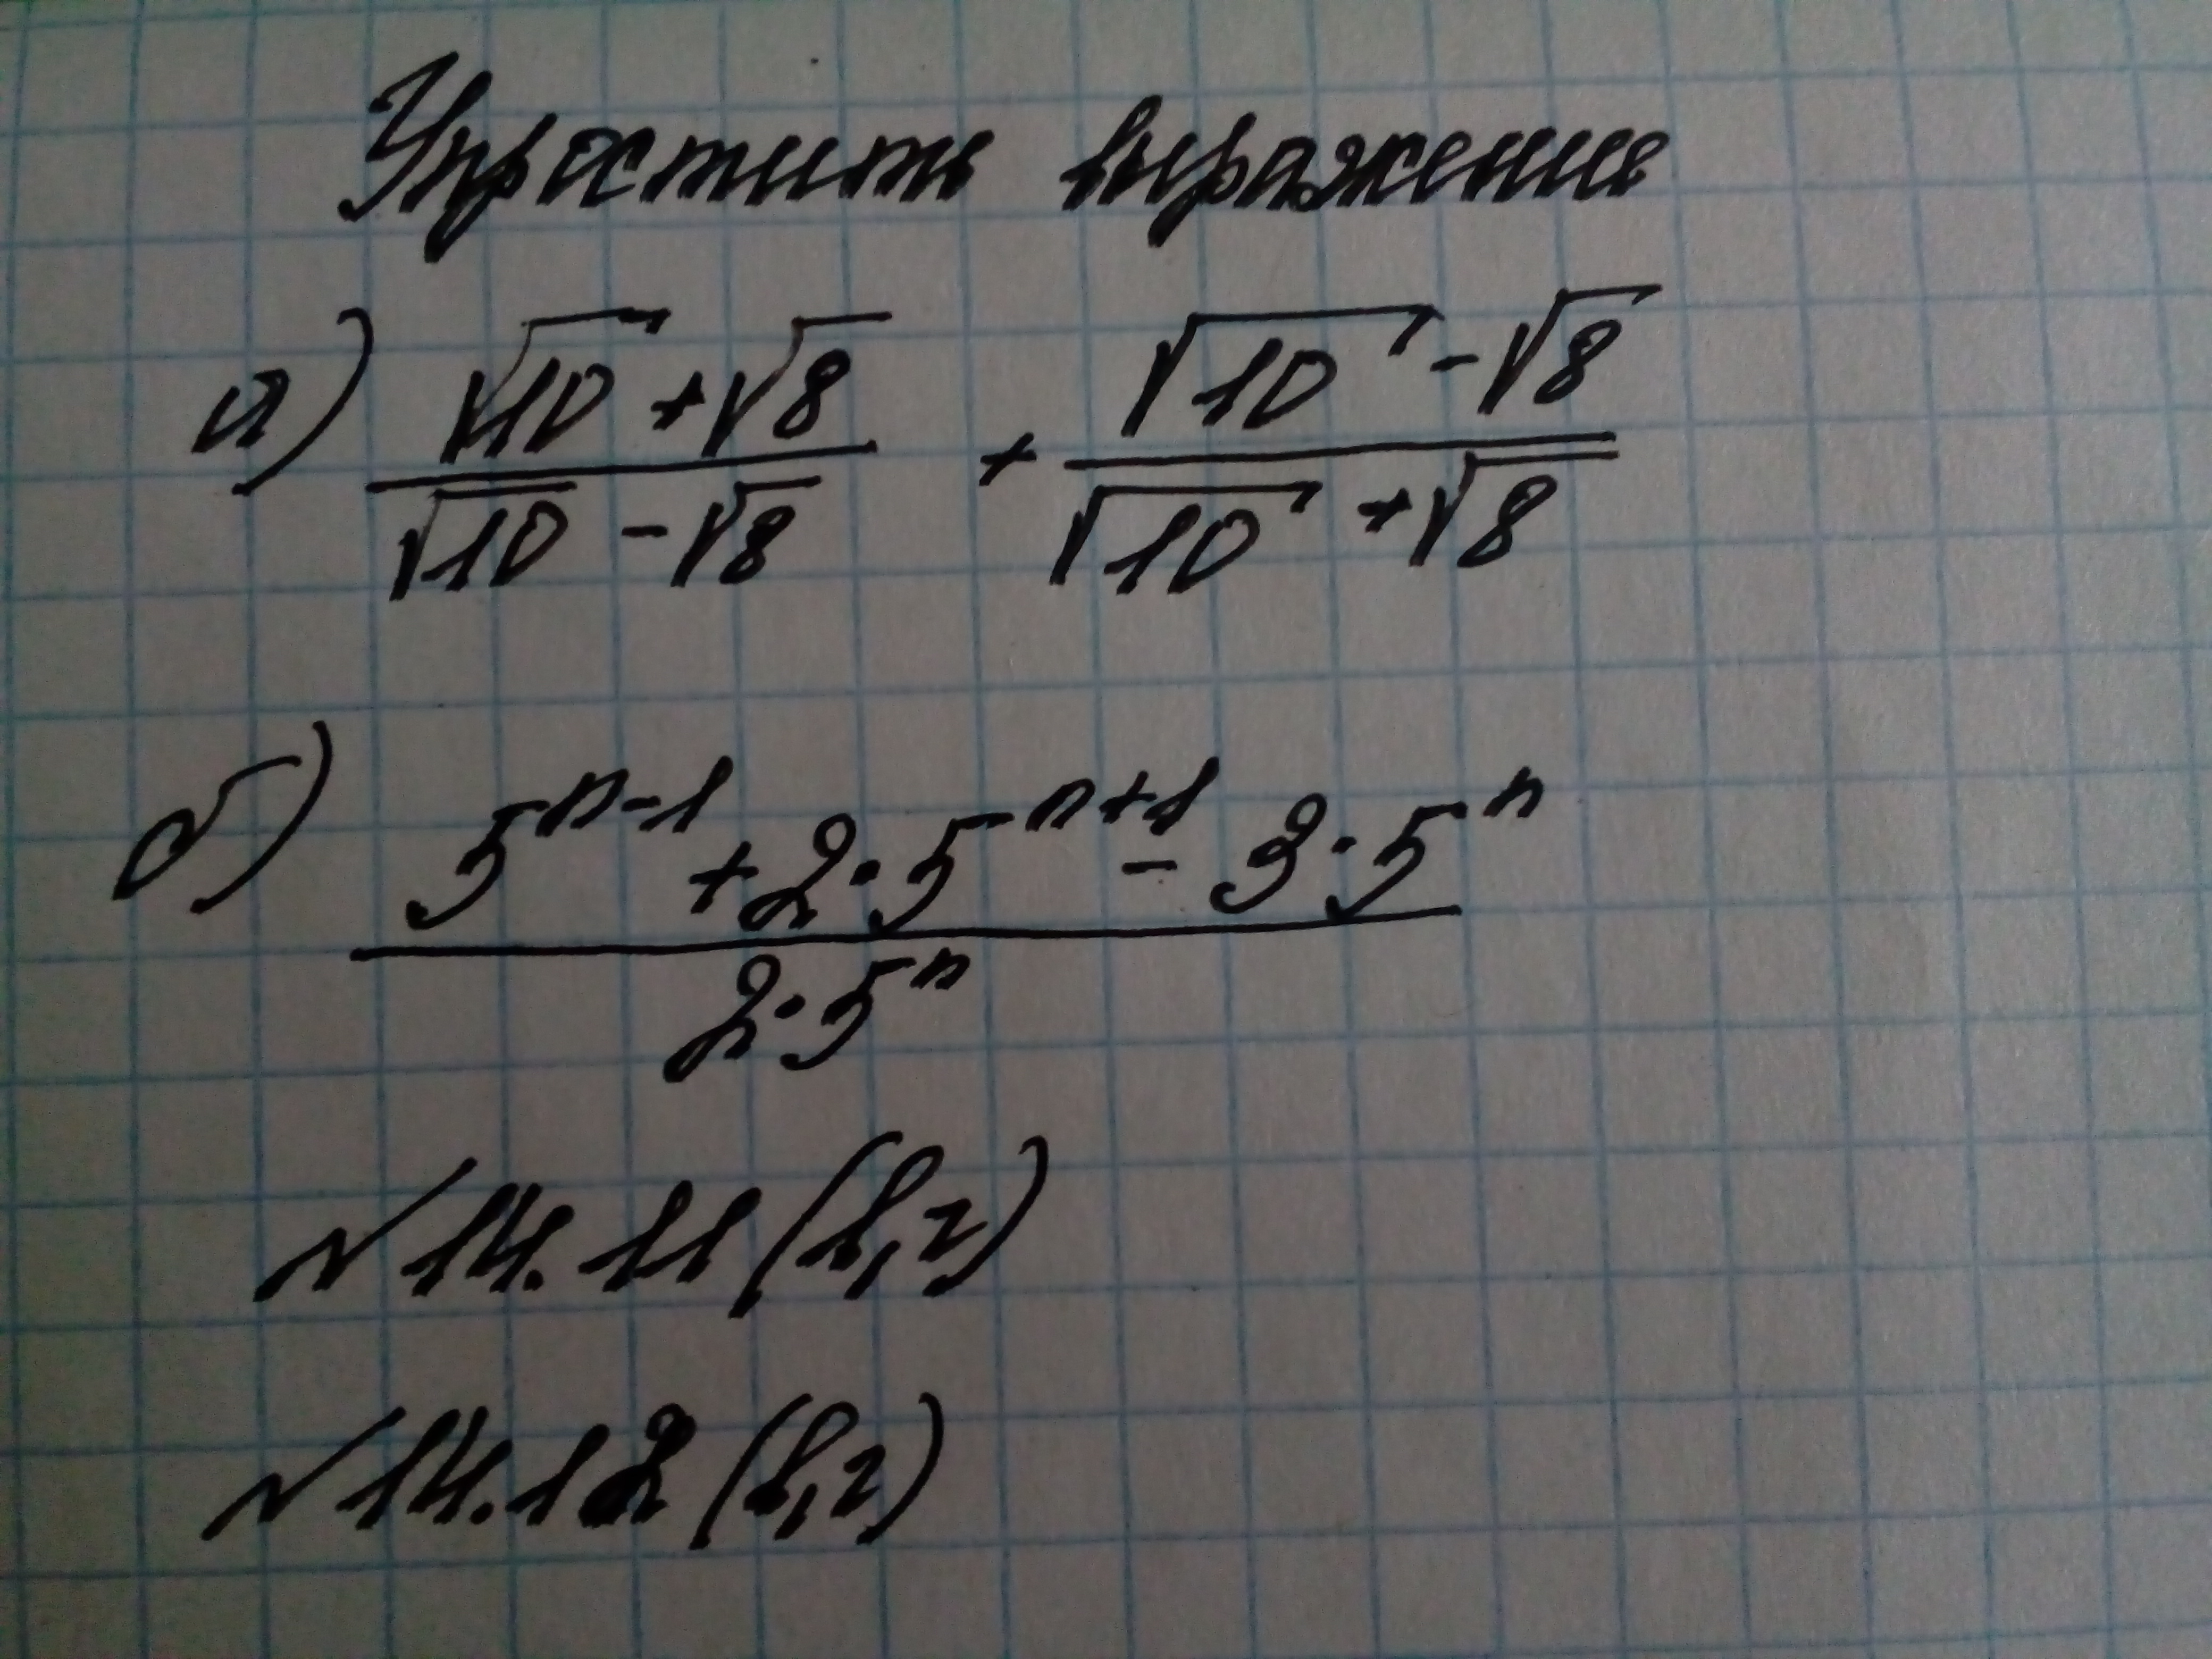 Упростить выражение
а) (√10 + √8)/(√10 - √8) + (√10 - √8)/(√10 + √8)
б) (5^(n-1) + 2·5^(n+1) - 3·5^n)/(2·5^n)
№14.11(в,г)
№14.12(в,г)